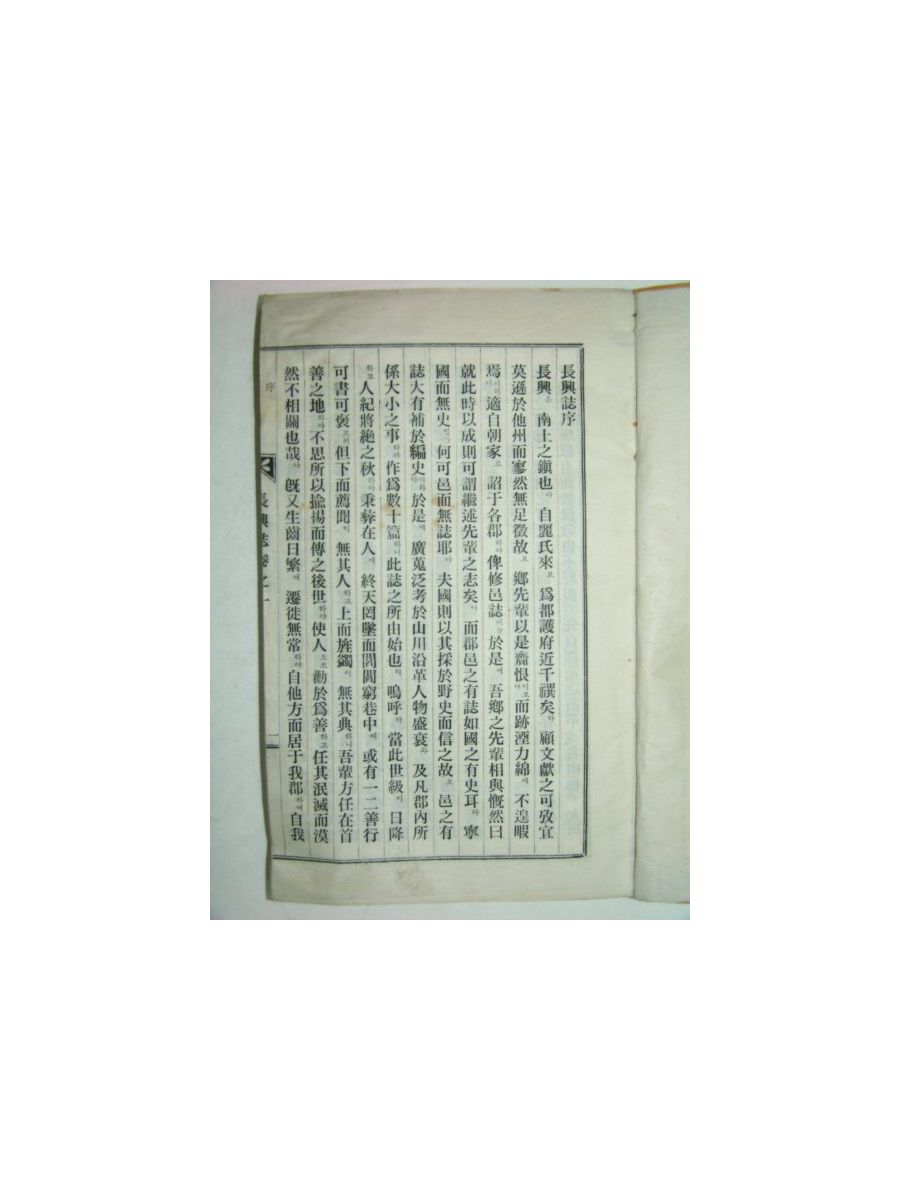 長興誌序
長興은 南土之鎭也라 自麗氏來로 爲都護府近千禩矣라 顧文獻之可攷宜
莫遜於他州而寥然無足徵故로 鄕先輩以是齎恨이로되而跡湮力綿에 不遑暇
焉이러니 適自朝家로 詔于各郡하야 俾修邑誌 於是에 吾鄕之先輩相與慨然曰
就此時以成則可謂繼述先輩之志矣 而郡邑之有誌如國之有史耳라 寧
國而無史 何可邑而無誌耶아 夫國則以其採於野史而信之故로 邑之有
誌大有補於編史 於是에 廣蒐泛考於山川沿革人物盛衰와 及凡郡內所
係大小之事하야 作爲數十篇하니 此誌之所由始也라 嗚呼라 當此世級이 日降
하고 人紀將絶之秋하야 秉彜在人에 終天罔墜而閭閻窮巷中에 或有一二善行
可書可褒 但下而薦聞이 無其人하고 上而旌蠲이 無其典하니 吾輩方任在首
善之地하야 不思所以揄揚而傳之後世하야 使人으로 勸於爲善하고 任其泯滅而漠
然不相關也哉아 旣又生齒日繁에 遷徙無常하야 自他方而居于我郡하며 自我
序
長興誌卷之一
一